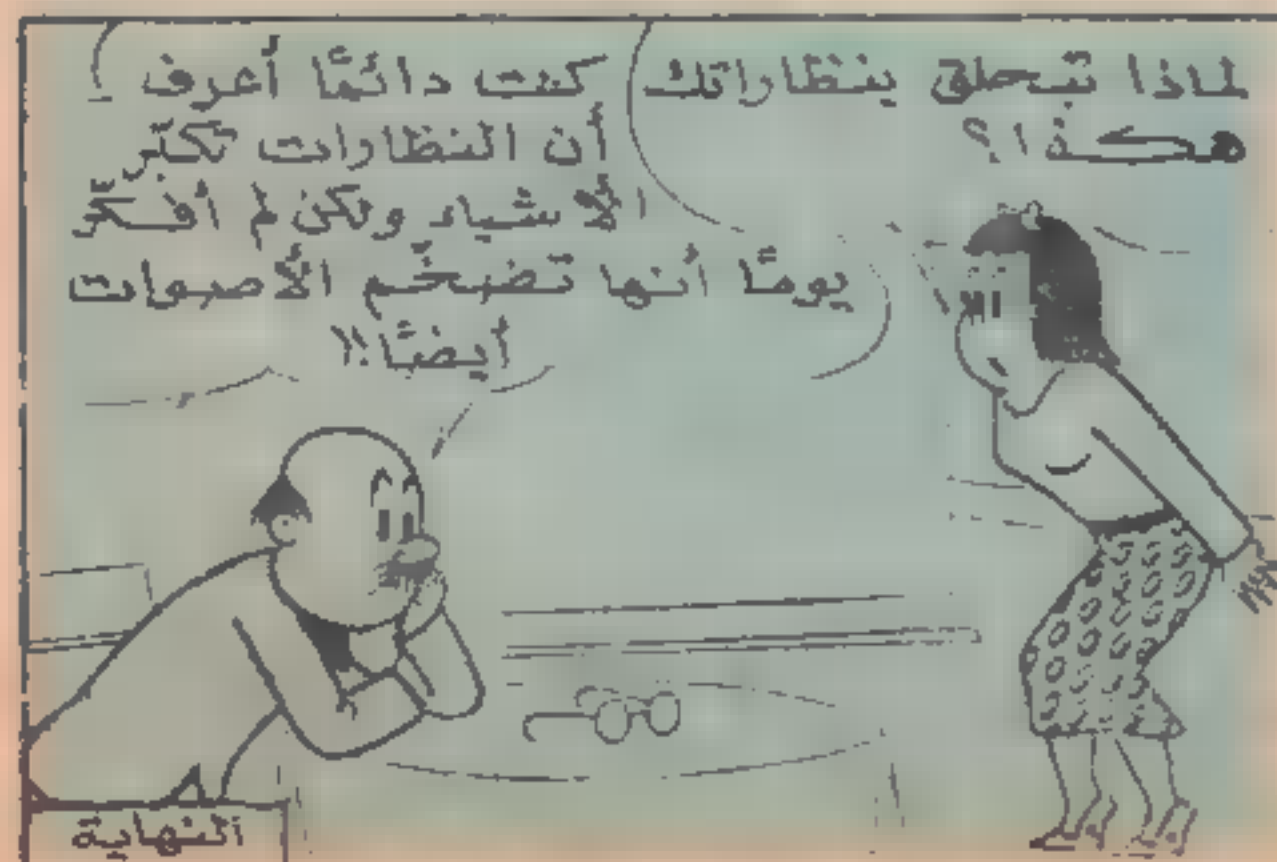 لماذا تبحلق بنظاراتك
هكذا؟
كنت دائمًا أعرف
أن النظارات تكبّر
الأشياء ولكن لم أفكّر
يومًا أنها تضخّم الأصوات
أيضًا!!
النهاية